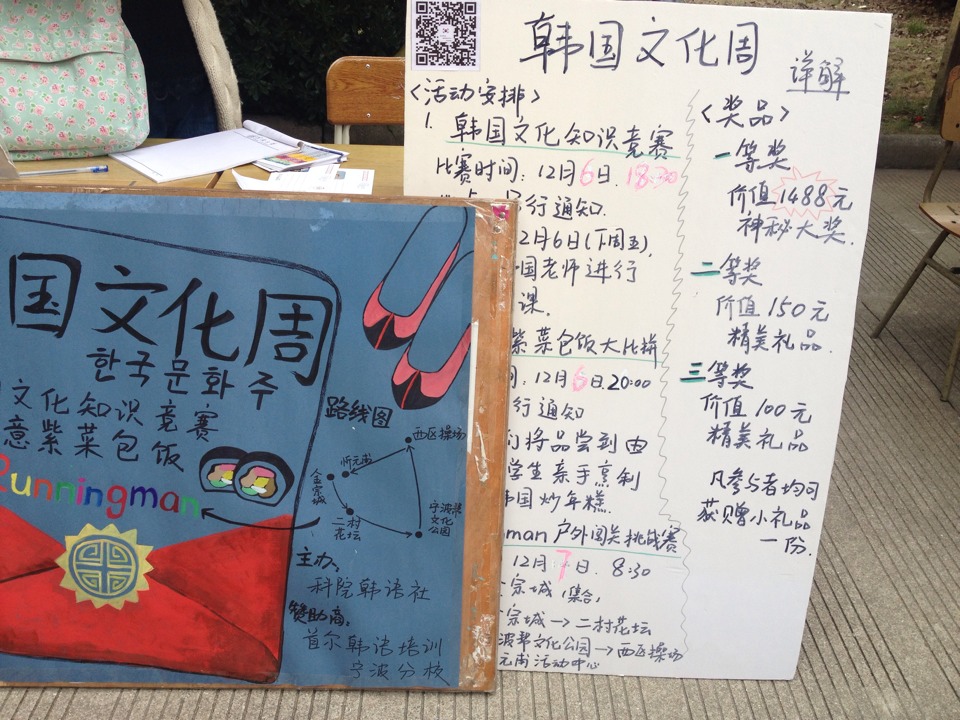 国文化周
한국문화주
文化知识竞赛
意紫菜包饭
Runningman
路线图
西区操场
忻元甫
金宗城
二村
花坛
宁波帮
文化
公园
主办:
科院韩语社
赞助商:
首尔韩语培训
宁波分校
韩国文化周
详解
<活动安排>
1. 韩国文化知识竞赛
比赛时间: 12月6日. 18:30
行通知.
2月6日(下周五),
国老师进行
课.
紫菜包饭大比拼
12月6日.20:00
行通知
们将品尝到由
学生亲手烹制
韩国炒年糕.
man 户外闯关挑战赛
12月7日. 8:30
宗城 (集合)
宗城→二村花坛
波帮文化公园→西区操场
元甫活动中心
<奖品>
一等奖
价值1488元
神秘大奖.
二等奖
价值150元
精美礼品.
三等奖
价值100元
精美礼品
凡参与者均可
获赠小礼品
一份.